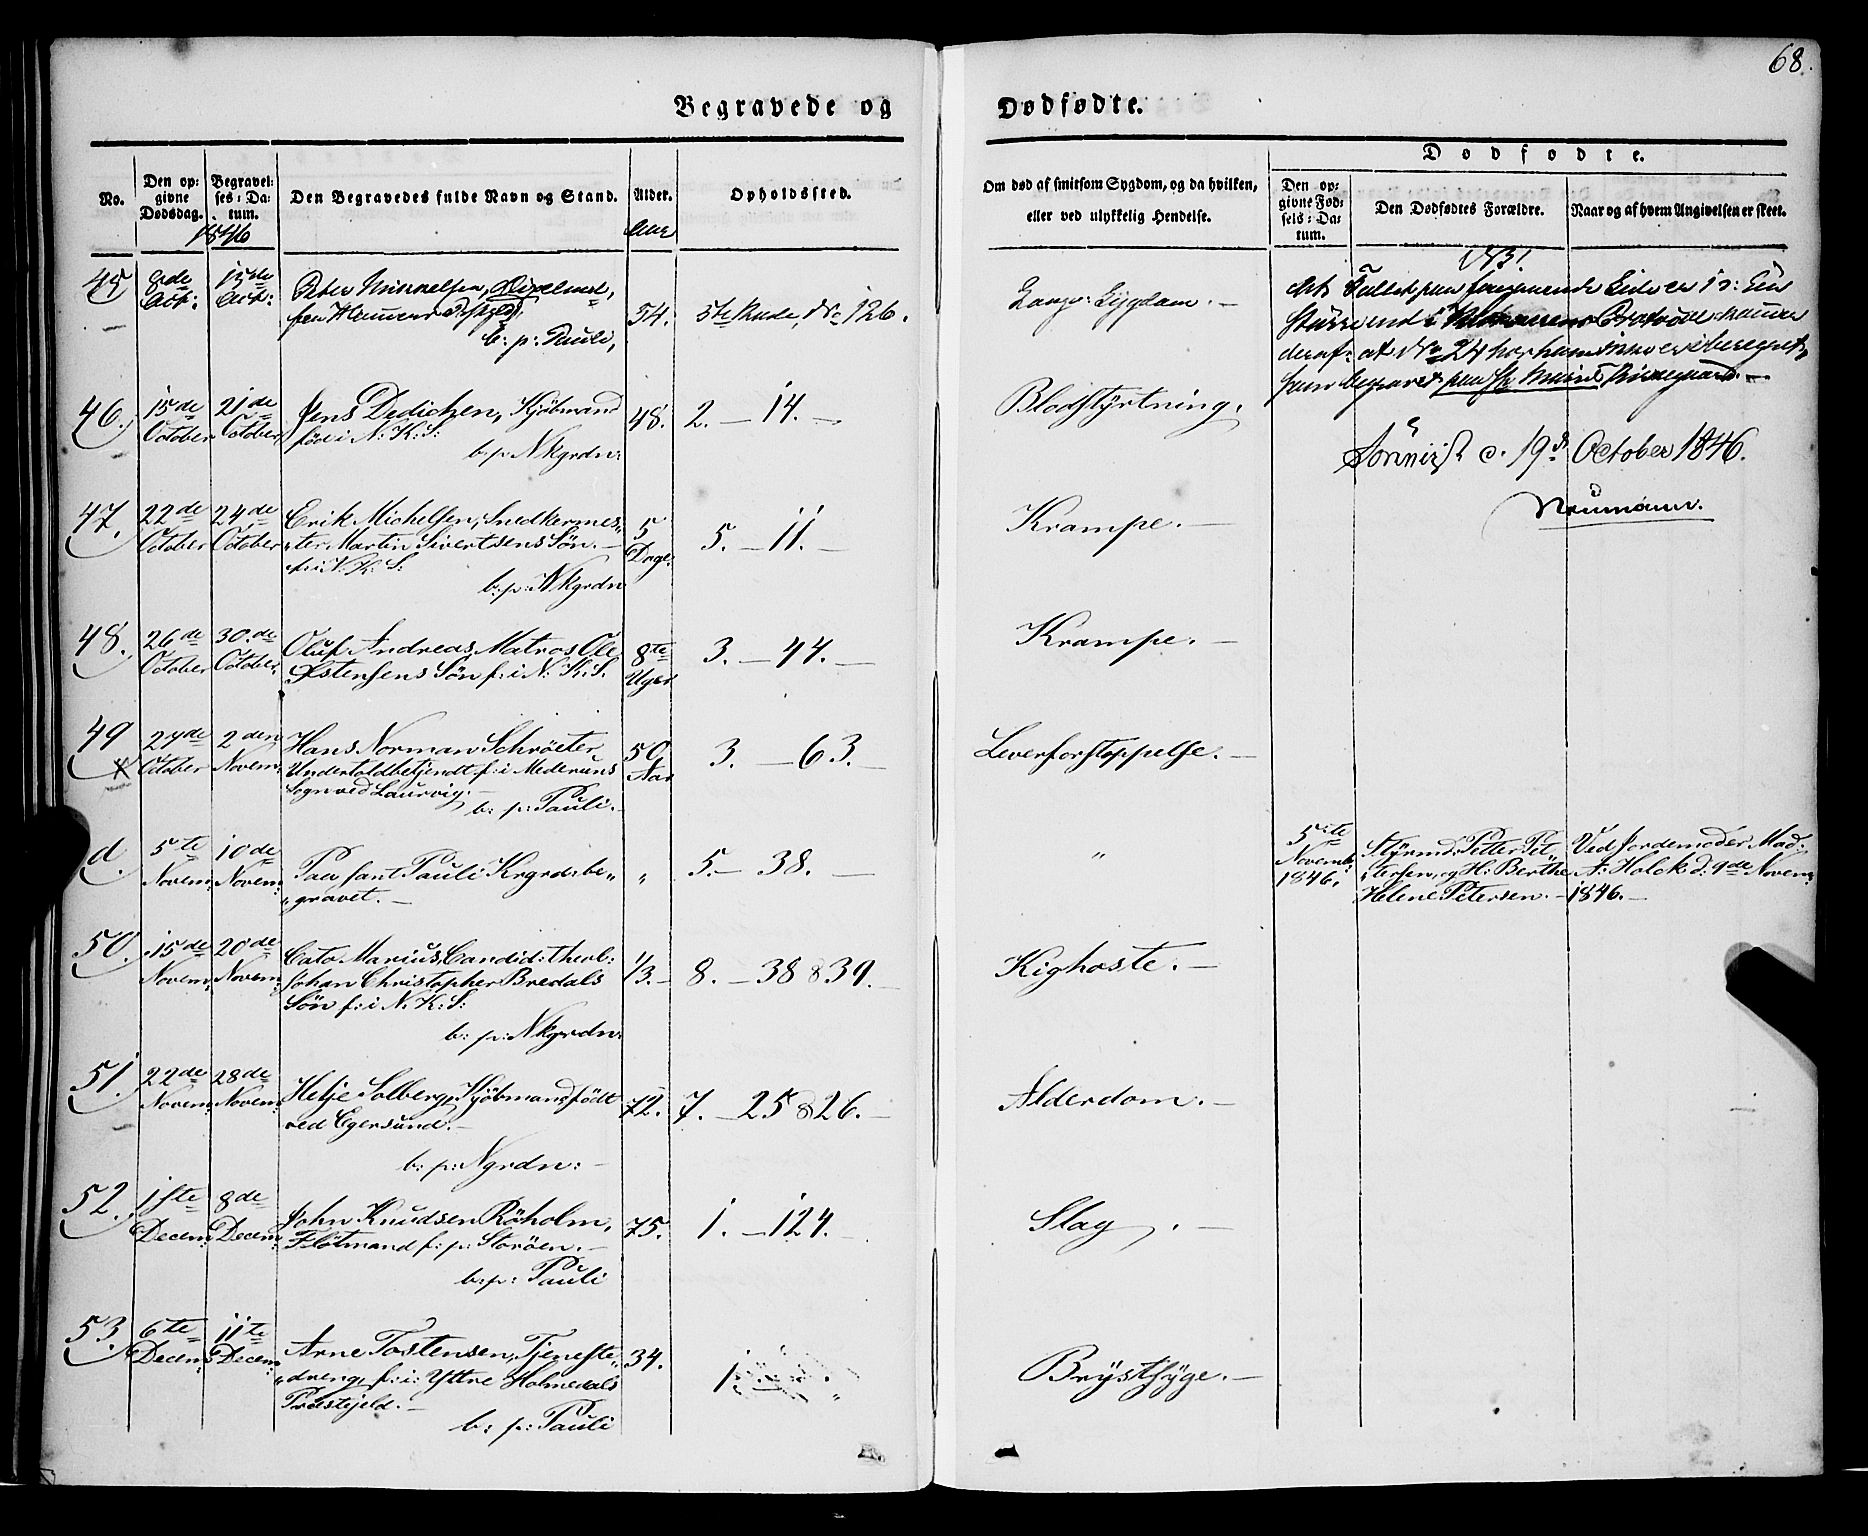 68.
Begravede og Dødfødte.
No.
Den opgivne Dødsdag.
Begravelses-Datum.
Den Begravedes fulde Navn og Stand.
Alder.
Opholdssted.
Om død af smitsom Sygdom, og da hvilken, eller ved ulykkelig Hendelse.
Dødfødte.
Den opgivne Fødsels-Datum.
Den Dødfødtes Forældre.
Naar og af hvem Angivelsen er skeet.
1846
Aar
45 8de Oct: 15de Oct:
Peter
b: p: Pauli,
54. 3te Rode, No 126.
Sygdom. —
No 24
46. 15de October 21de October
Jens Dedichen, Kjöbmand
föd i N: K: S:
b: p: Nkgrdn:
48. 2. — 14. —
Blodstyrtning.
d. 19de October 1846.
Neumann.
47. 22de October 24de October
Erik Michelsen, Snedkermes„
„ter Martin Sivertsens Sön. —
f: i N: K: S:
b: p: Nkgrdn
5 Dage. 5. — 11. —
Krampe. —
48. 26de October 30de October
Oluf Andreas, Matros Ole
Östensens Sön f: i N: K: S.
8te Uger 3. — 44. —
Krampe. —
49 27de October 2den Novem:
Hans Norman Schröeter
Undertoldbetjendt f: i
Sogn ved Laurvig. —
b: p: Pauli. —
50 Aar 3. — 63. —
Leverforstoppelse. —
d. 5te Novem: 10de Novem:
Paa sant Pauli Krgrd: be„
„gravet. —
„ 5. — 38. —
„
5te Novemb: 1846.
Styrmd: Petter Pet„
„tersen, og H: Berthe
Helene Petersen. —
Ved Jordemoder Mad:
A: Holck d: 9de Novem:
1846. —
50. 15de Novem: 20de Novem:
Cato Marius, Candid: theol:
Johan Christopher Bredals
Sön f: i N: K: S:
b: p: Nkgrdn:
1/3. — 8. — 38 & 39. —
Kighoste. —
51. 22de Novem: 28de Novem:
Helje Solberg, Kjöbmand födt
ved Egersund. —
b: p: Ngrdn: —
72. 7. — 25 & 26. —
Alderdom. —
52. 1ste Decem: 8de Decem:
John Knudsen Röholm,
Flötmand f: p: Storöen. —
b: p: Pauli
75. 1. — 124. —
Slag. —
53. 6te Decem: 11te Decem:
Arne Tostensen, Tjeneste„
„dreng, f: i: Yttre Holmedals
Præstejeld. —
b: p: Pauli
34. 1.
Brystsyge. —